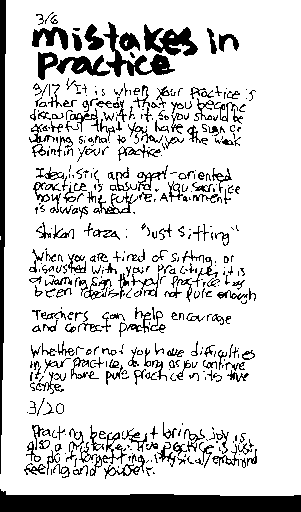 3/6
mistakes in
practice
3/17 "It is when your practice is
rather greedy that you become
discouraged with it. So you should be
grateful that you have a sign or
warning signal to show you the weak
point in your practice."
Idealistic and goal-oriented
practice is absurd. You sacrifice
now for the future. Attainment
is always ahead.
Shikan taza: "Just Sitting"
When you are tired of sitting, or
disgusted with your practice, it is
a warning sign that your practice has
been idealistic and not pure enough
Teachers can help encourage
and correct practice
Whether or not you have difficulties
in your practice, as long as you continue
it, you have pure practice in its true
sense.
3/20
Practing because it brings joy is
also a mistake. True practice is just
to do it forgetting physical/emotional
feeling and yourself.